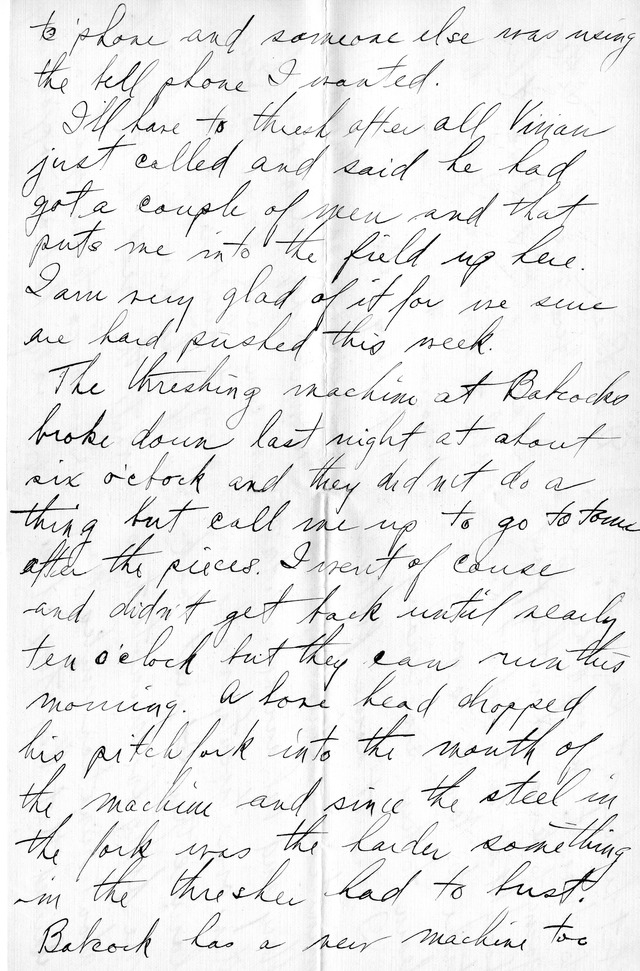 to 'phone and someone else was using
the bell phone I wanted.
I'll have to thresh after all Vivian
just called and said he had
got a couple of men and that
puts me into the field up here.
I am very glad of it for we sure
are hard pushed this week.
The threshing machine at Babcocks
broke down last night at about
six o'clock and they did n't do a
thing but call me up to go to town
after the pieces. I went of couse
and didn't get back until nearly
ten o'clock but they can run this
morning. A bone head dropped
his pitchfork into the mouth of
the machine and since the steel in
the fork was the harder something
in the thresher had to bust.
Babcock has a new machine too